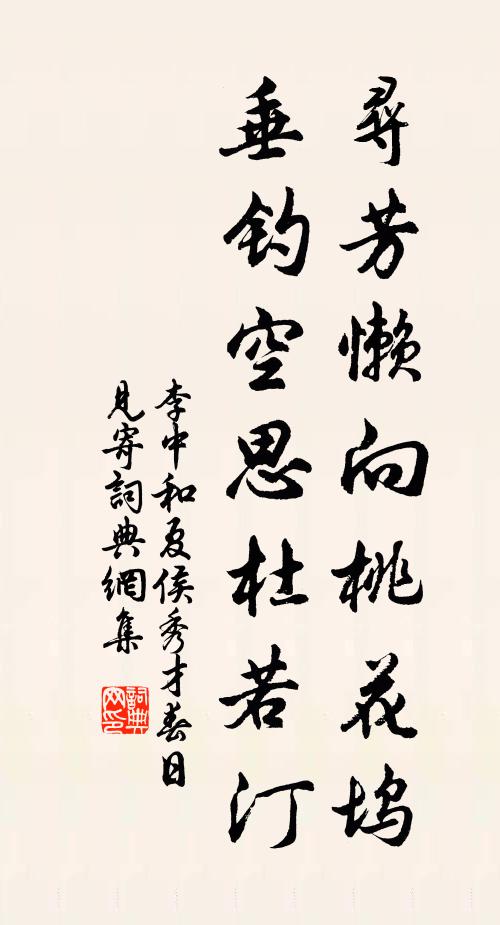 尋芳懒向桃花坞
垂钓空思杜若汀
李中和夏侯秀才春日
见寄詞典網集
詞典网印